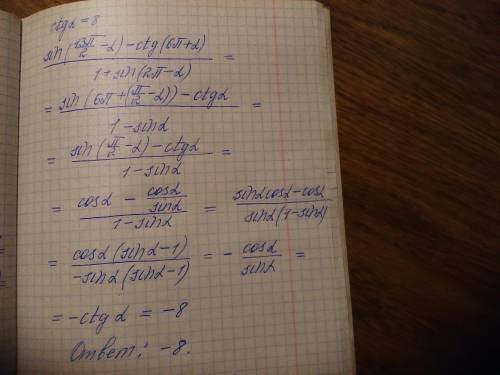 ctgα = 8
(sin(13π/2 - α) - ctg(6π + α))/(1 + sin(2π - α)) =
= (sin(6π + (π/2 - α)) - ctgα)/(1 - sinα) =
= (sin(π/2 - α) - ctgα)/(1 - sinα) =
= (cosα - cosα/sinα)/(1 - sinα) = (sinα cosα - cosα)/(sinα(1 - sinα))
= (cosα(sinα - 1))/(-sinα(sinα - 1)) = - cosα/sinα =
= -ctgα = -8
Ответ: -8.